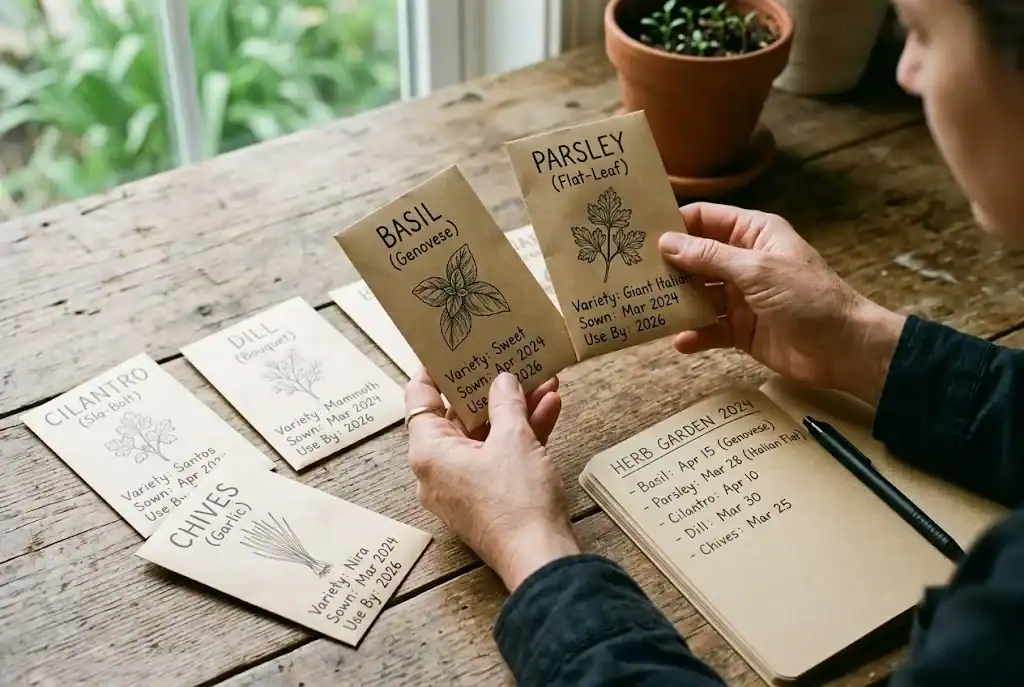 BASIL
(Genovese)
Variety: Sweet
Sown: Apr 2024
Use 2026
PARSLEY
(Flat-Leaf)
Variety: Giant Italian
Sown: Mar 2024
Use By: 2026
DILL
(Bouquet)
Variety: Mammoth
Sown: Mar 2024
Use By: 2026
CILANTRO
(Slo-Bolt)
Variety: Santos
Sown: Apr
Use
CHIVES
(Garlic)
Variety: Nira
Sown: Mar 2024
Use By: 2026
HERB GARDEN 2024
- Basil: Apr 15 (Genovese)
- Parsley: Mar 28 (Italian Flat)
- Cilantro: Apr 10
- Dill: Mar 30
- Chives: Mar 25